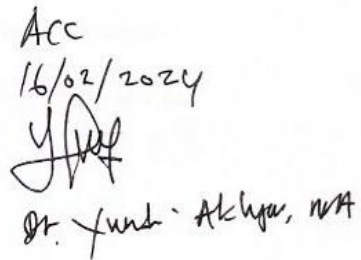 ACC
16/02/2024
Dr. Yundri Akhyar, MA